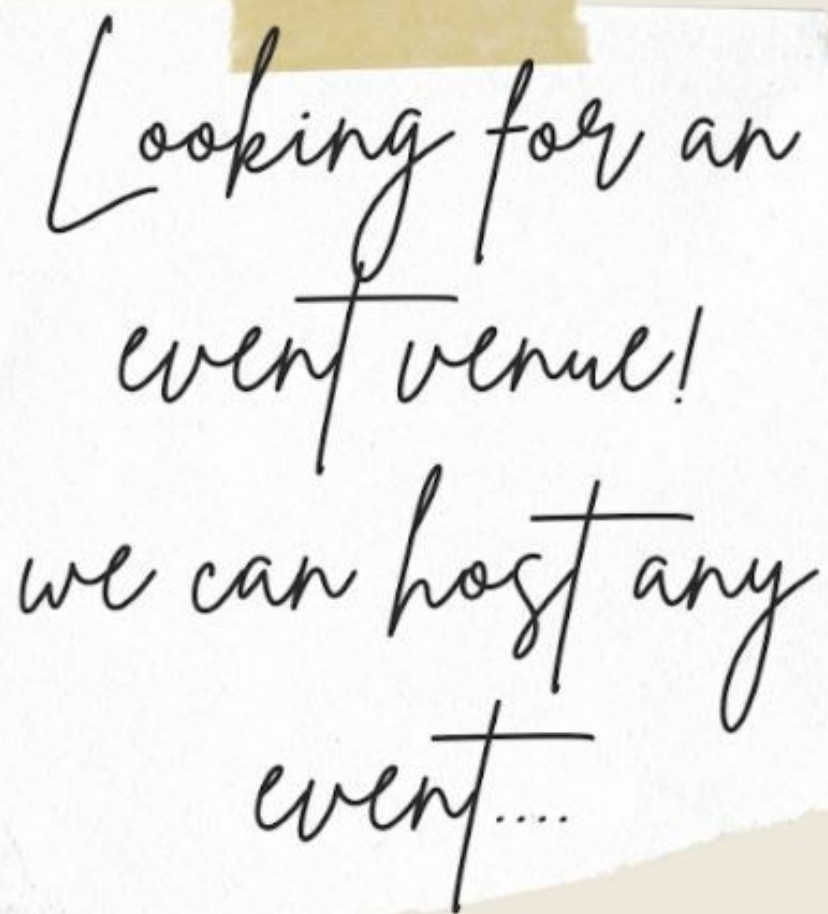 Looking for an
event venue!
we can host any
event....